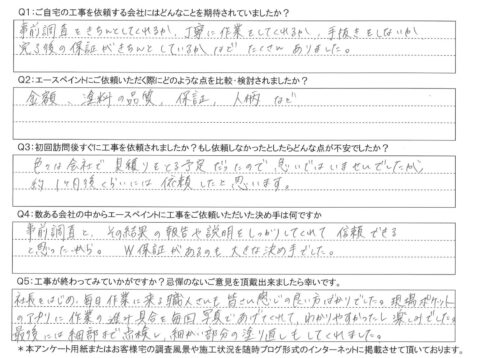 Q1：ご自宅の工事を依頼する会社にはどんなことを期待されていましたか？
事前調査をきちんとしてくれるか、丁寧に作業をしてくれるか、手抜きをしないか
完了後の保証がきちんとしているかなど たくさんありました。
Q2：エースペイントにご依頼いただく際にどのような点を比較・検討されましたか？
金額、塗料の品質、保証、人柄など
Q3：初回訪問後すぐに工事を依頼されましたか？もし依頼しなかったとしたらどんな点が不安でしたか？
色々な会社で見積りをとる予定だったので急いではいませんでしたが、
約1ヶ月後くらいには依頼したと思います。
Q4：数ある会社の中からエースペイントに工事をご依頼いただいた決め手は何ですか
事前調査と、その結果の報告や説明をしっかりしてくれて信頼できる
と思ったから。W保証があるのも大きな決め手でした。
Q5：工事が終わってみていかがですか？忌憚のないご意見を頂戴出来ましたら幸いです。
社長をはじめ、毎日作業に来る職人さんも皆さん感じの良い方ばかりでした。現場ポケット
のアプリに作業の進み具合を毎回写真であげてくれて、わかりやすかったし楽しみでした。
最後には細部まで点検し、細かい部分の塗り直しもしてくれました。
＊本アンケート用紙またはお客様宅の調査風景や施工状況を随時ブログ形式のインターネットに掲載させて頂いております。